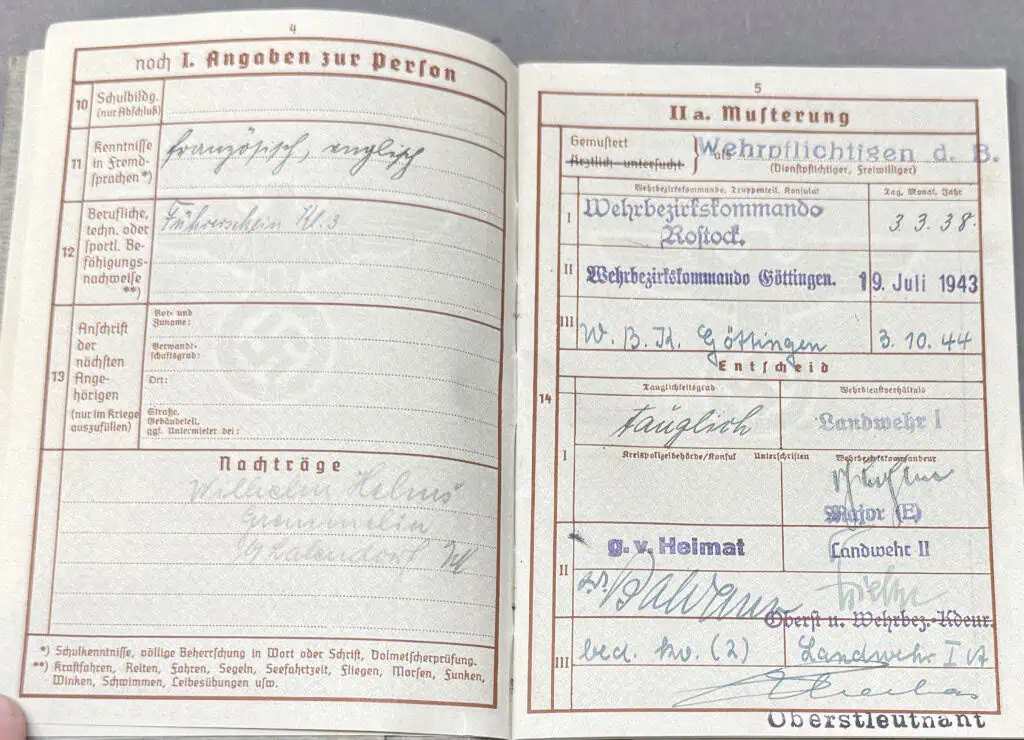 4
noch I. Angaben zur Person
10
Schulbildg.
(nur Abschluß)
11
Kenntnisse
in Fremd-
sprachen*)
französisch, englisch
12
Berufliche,
techn. oder
sportl. Be-
fähigungs-
nachweise
**)
Führerschein Kl. 3
13
Anschrift
der
nächsten
Ange-
hörigen
(nur im Kriege
auszufüllen)
Vor- und
Zuname:
Verwandt-
schaftsgrad:
Ort:
Straße,
Gebäudeteil,
ggf. Untermieter bei:
Nachträge
Wilhelm Helms
*) Schulkenntnisse, völlige Beherrschung in Wort oder Schrift, Dolmetscherprüfung.
**) Kraftfahren, Reiten, Fahren, Segeln, Seefahrtzeit, Fliegen, Morsen, Funken,
Winken, Schwimmen, Leibesübungen usw.
5
IIa. Musterung
Gemustert
Ärztlich untersucht
als
Wehrpflichtigen d. B.
(Dienstpflichtiger, Freiwilliger)
Wehrbezirkskommando, Truppenteil, Konsulat
Tag, Monat, Jahr
I
Wehrbezirkskommando
Rostock.
3.3.38.
II
Wehrbezirkskommando Göttingen.
19. Juli 1943
III
W. B. K. Göttingen
3.10.44
Entscheid
14
Tauglichkeitsgrad
Wehrdienstverhältnis
I
tauglich
Landwehr I
Kreispolizeibehörde/Konsul
Unterschriften
Wehrbezirkskommandeur
Major (E)
II
g. v. Heimat
Landwehr II
Oberst u. Wehrbez.-Kdeur.
III
bed. kv. (2)
Landwehr I A
Oberstleutnant